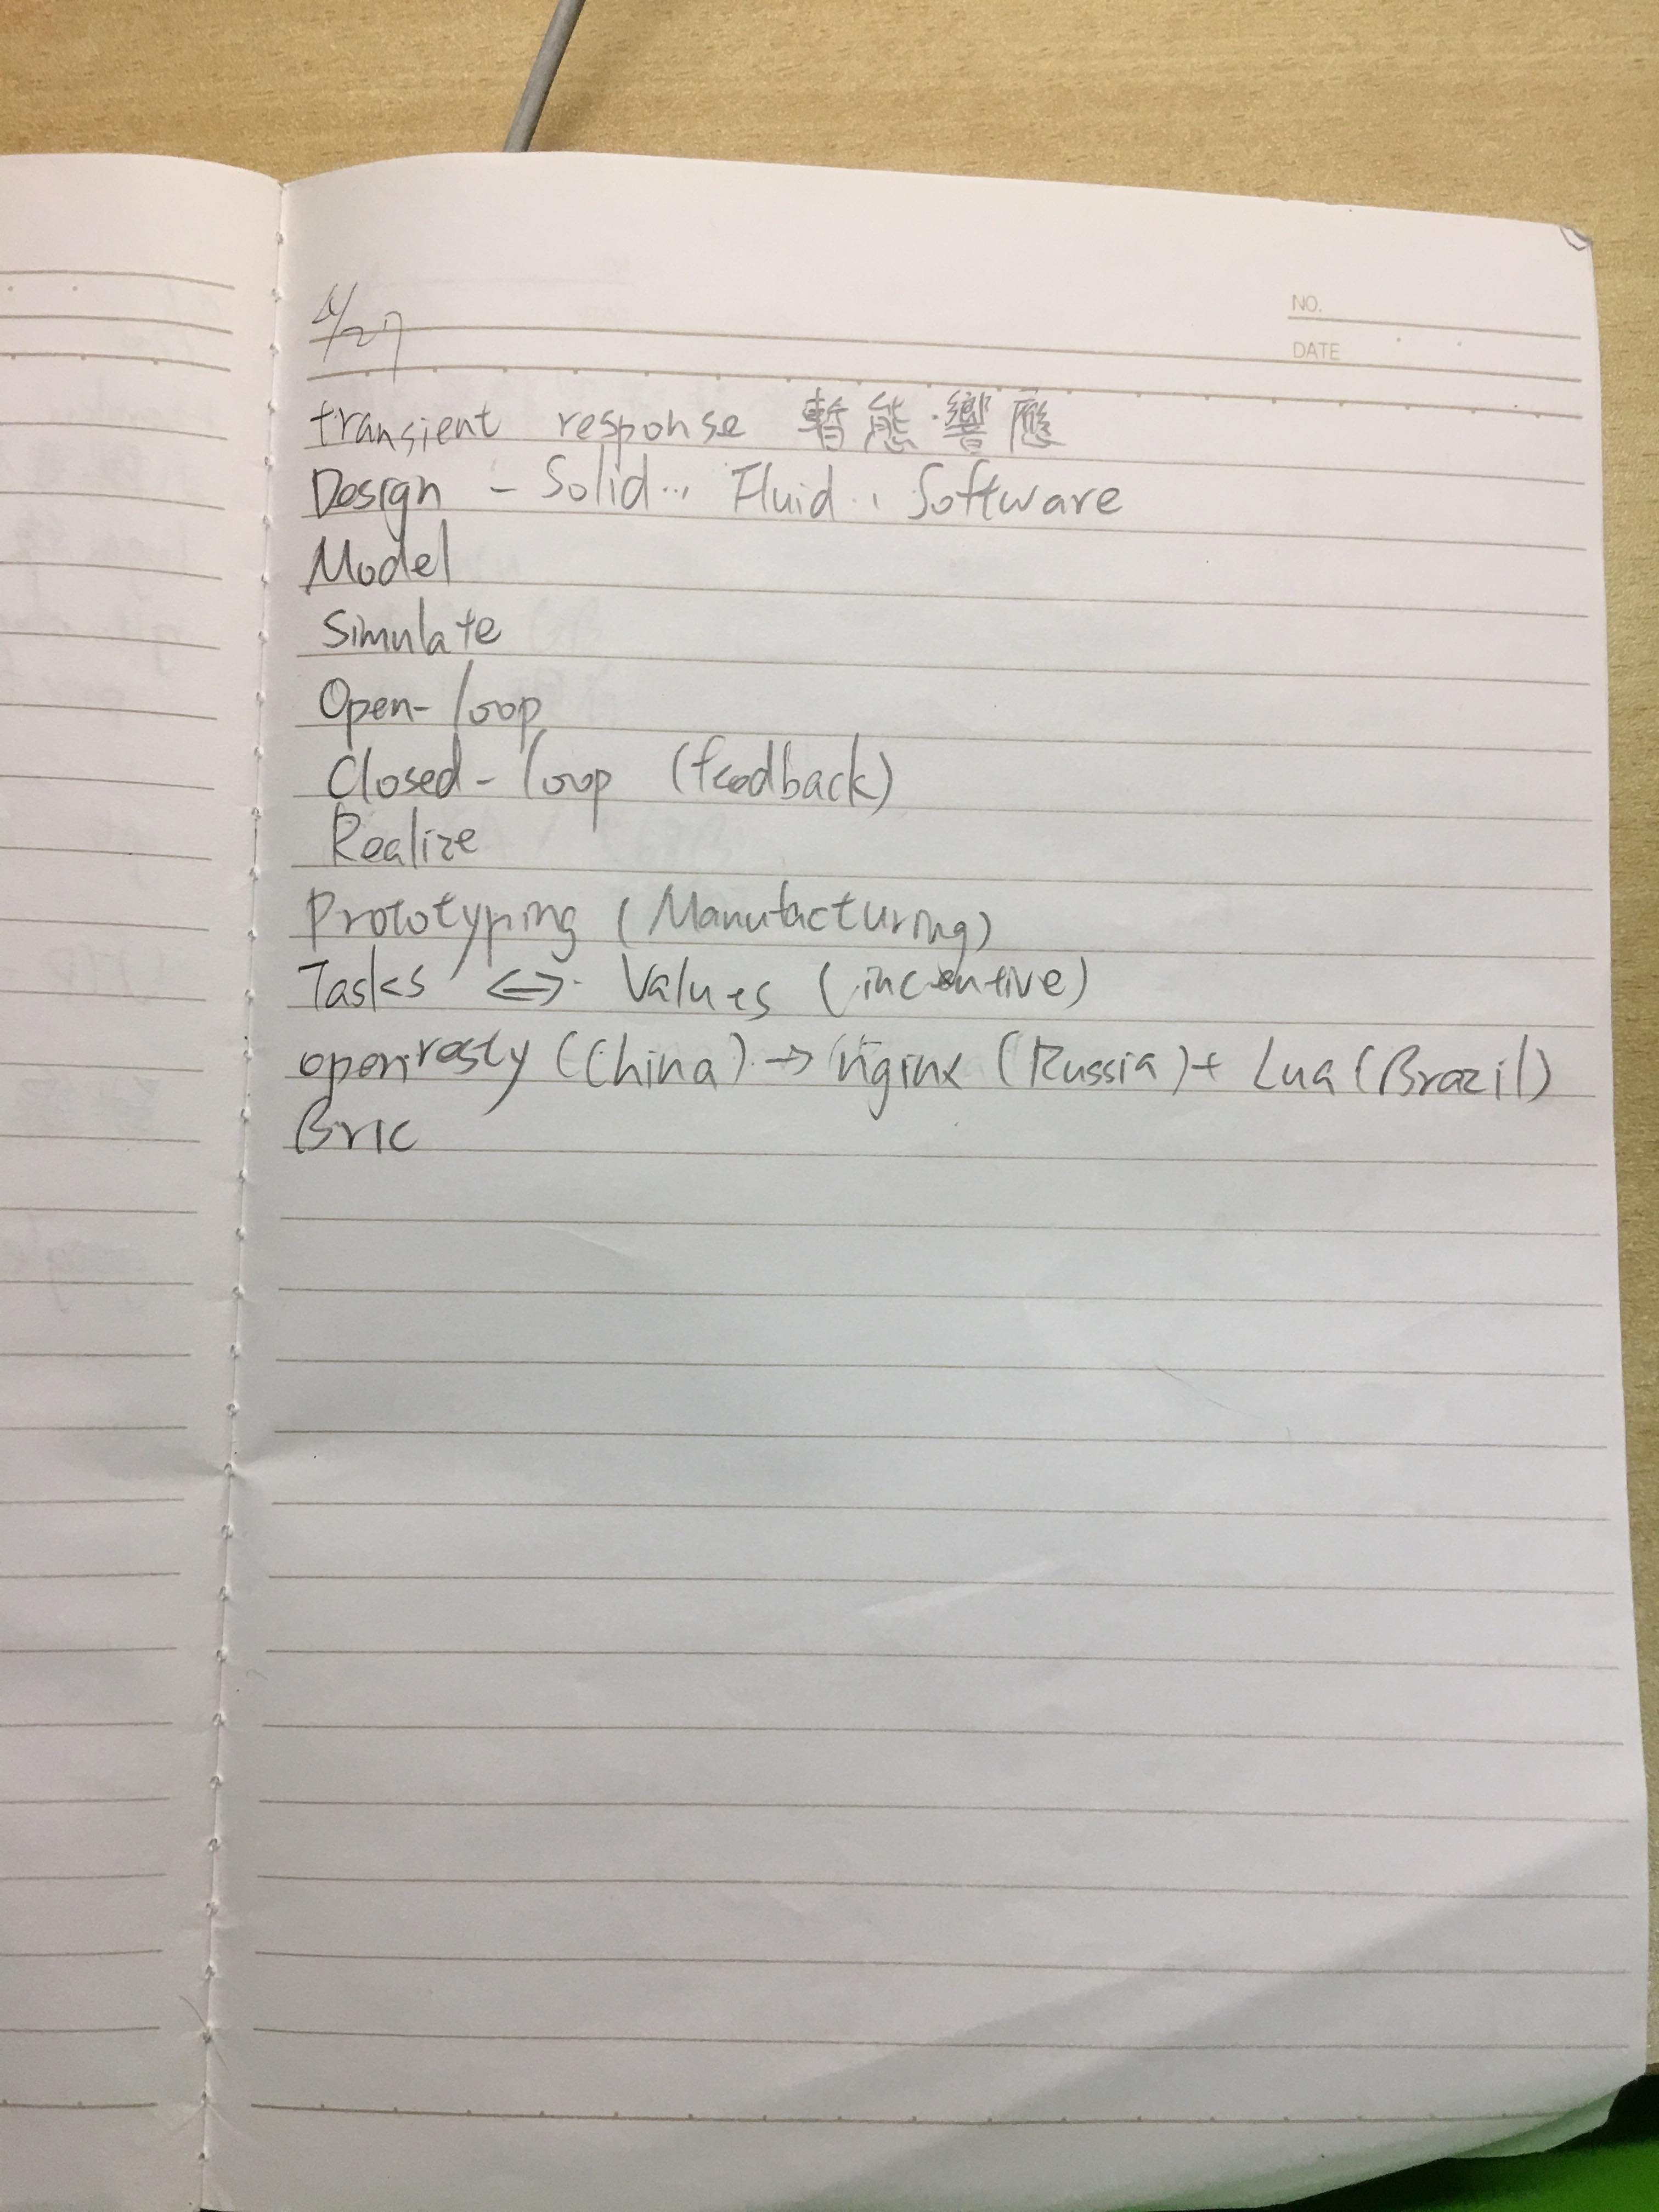 4/27
NO.
DATE
transient response 暫態響應
Design - Solid.., Fluid.., Software
Model
Simulate
Open-loop
Closed-loop (feedback)
Realize
Prototyping (Manufacturing)
Tasks <=> Values (incentive)
openresty (China) → Nginx (Russia) + Lua (Brazil)
Bric